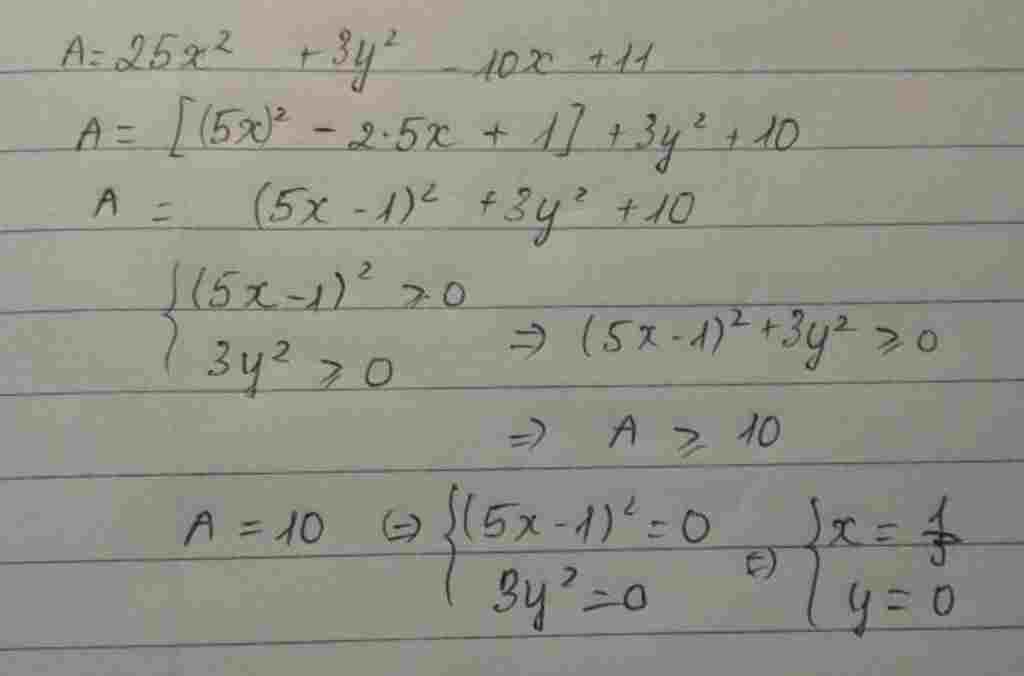 A = 25x² + 3y² - 10x + 11
A = [(5x)² - 2·5x + 1] + 3y² + 10
A = (5x - 1)² + 3y² + 10
{ (5x - 1)² ≥ 0
3y² ≥ 0 ⇒ (5x - 1)² + 3y² ≥ 0
⇒ A ≥ 10
A = 10 ⇔ { (5x - 1)² = 0 ⇔ { x = 1/5
3y² = 0 y = 0